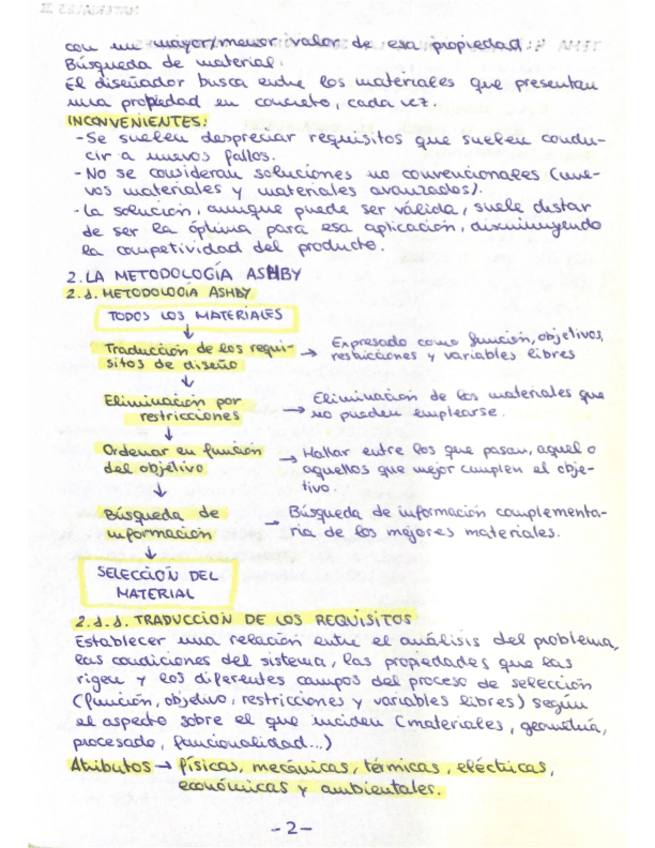 con un mayor/menor valor de esa propiedad.
Búsqueda de material.
El diseñador busca entre los materiales que presentan
una propiedad en concreto, cada vez.
INCONVENIENTES:
- Se suelen despreciar requisitos que suelen condu-
cir a nuevos fallos.
- No se consideran soluciones no convencionales (nue-
vos materiales y materiales avanzados).
- La solución, aunque puede ser válida, suele distar
de ser la óptima para esa aplicación, disminuyendo
la competividad del producto.
2. LA METODOLOGÍA ASHBY
2.1. METODOLOGÍA ASHBY
TODOS LOS MATERIALES
↓
Traducción de los requi- → Expresado como función, objetivos,
sitos de diseño restricciones y variables libres
↓
Eliminación por → Eliminación de los materiales que
restricciones no pueden emplearse.
↓
Ordenar en función → Hallar entre los que pasan, aquel o
del objetivo aquellos que mejor cumplen el obje-
tivo.
↓
Búsqueda de → Búsqueda de información complementa-
información ria de los mejores materiales.
↓
SELECCIÓN DEL
MATERIAL
2.1.1. TRADUCCIÓN DE LOS REQUISITOS
Establecer una relación entre el análisis del problema,
las condiciones del sistema, las propiedades que las
rigen y los diferentes campos del proceso de selección
(función, objetivo, restricciones y variables libres) según
el aspecto sobre el que inciden (materiales, geometría,
procesado, funcionalidad...)
Atributos → físicas, mecánicas, térmicas, eléctricas,
económicas y ambientales.
- 2 -